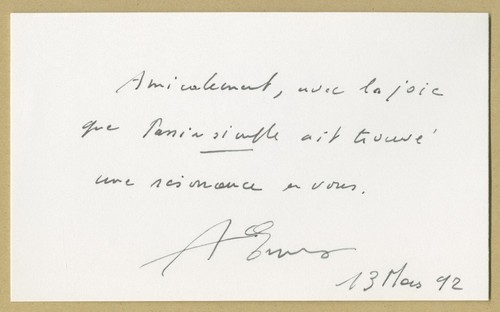 Amicalement, avec la joie
que Passion simple ait trouvé
une résonance en vous.
AErnaux
13 Mars 92